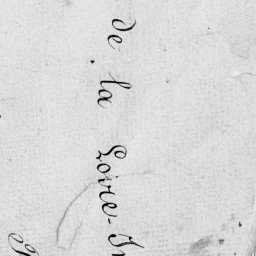 de la Loire-In